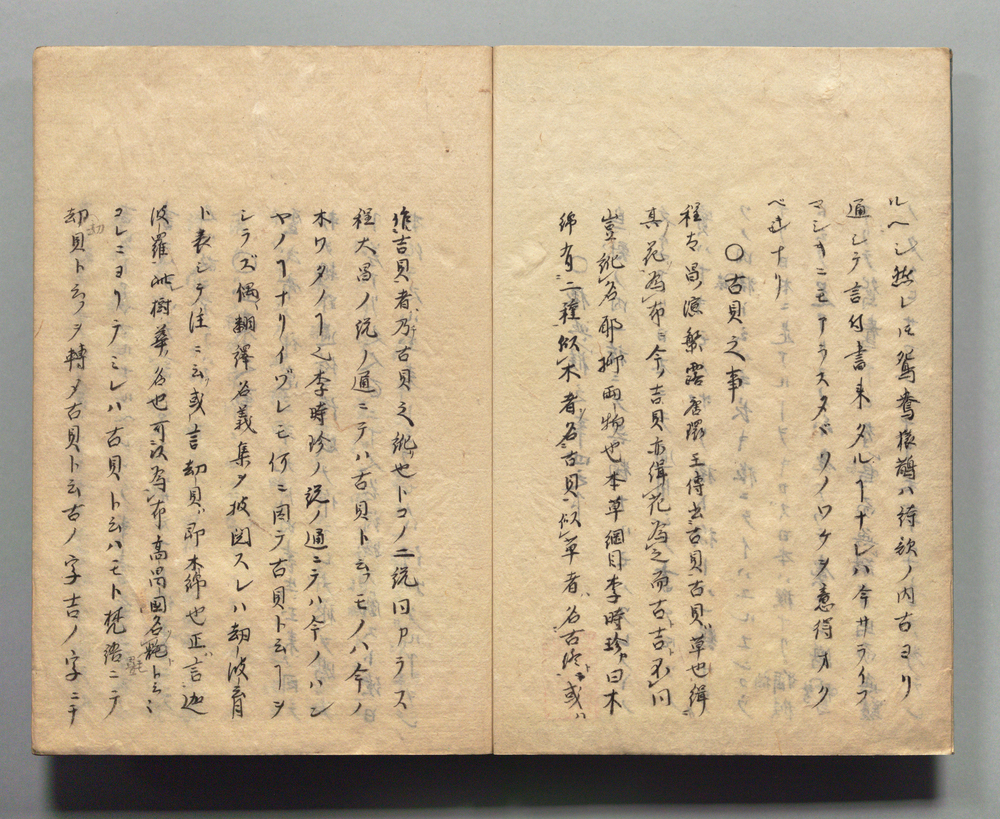 ルヘシ然レ𪜈鴛鴦猿鶴ハ詩歌ノ内古ヨリ
通シテ言付書来タルヿナレハ今サライフ
マシキニモアラスタヾソノワケヲ意得オク
ベキナリ
〇古貝之事
程大昌演繁露唐環王傳出古貝古貝草也緝
其花為布今吉貝亦緝花為之而古吉不同
豈訛名耶抑両物也本草綱目李時珍曰木
綿有二種似木者名古貝似草者名古終或
作吉貝者乃古貝之訛也トコノ二説同カラス
程大昌ノ説ノ通ニテハ古貝ト云モノハ今ノ
木ワタノヿ也李時珍ノ説ノ通ニテハ今ノハン
ヤノヿナリイヅレモ何ニ因テ古貝ト云ヿヲ
シラズ偶翻譯名義集ヲ披図スレハ劫波育
ト表シテ注ニ云或言劫貝即木綿也正言迦
波羅此樹華名也可以為布高昌国名氎ト云ミ
コレニヨリテミレハ古貝ト云ハモト梵語ニテ
却貝ト云ヲ轉メ古貝ト云古ノ字吉ノ字ニテ